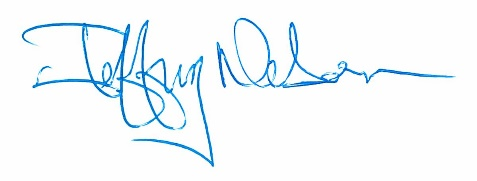 Jeffrey Nelson